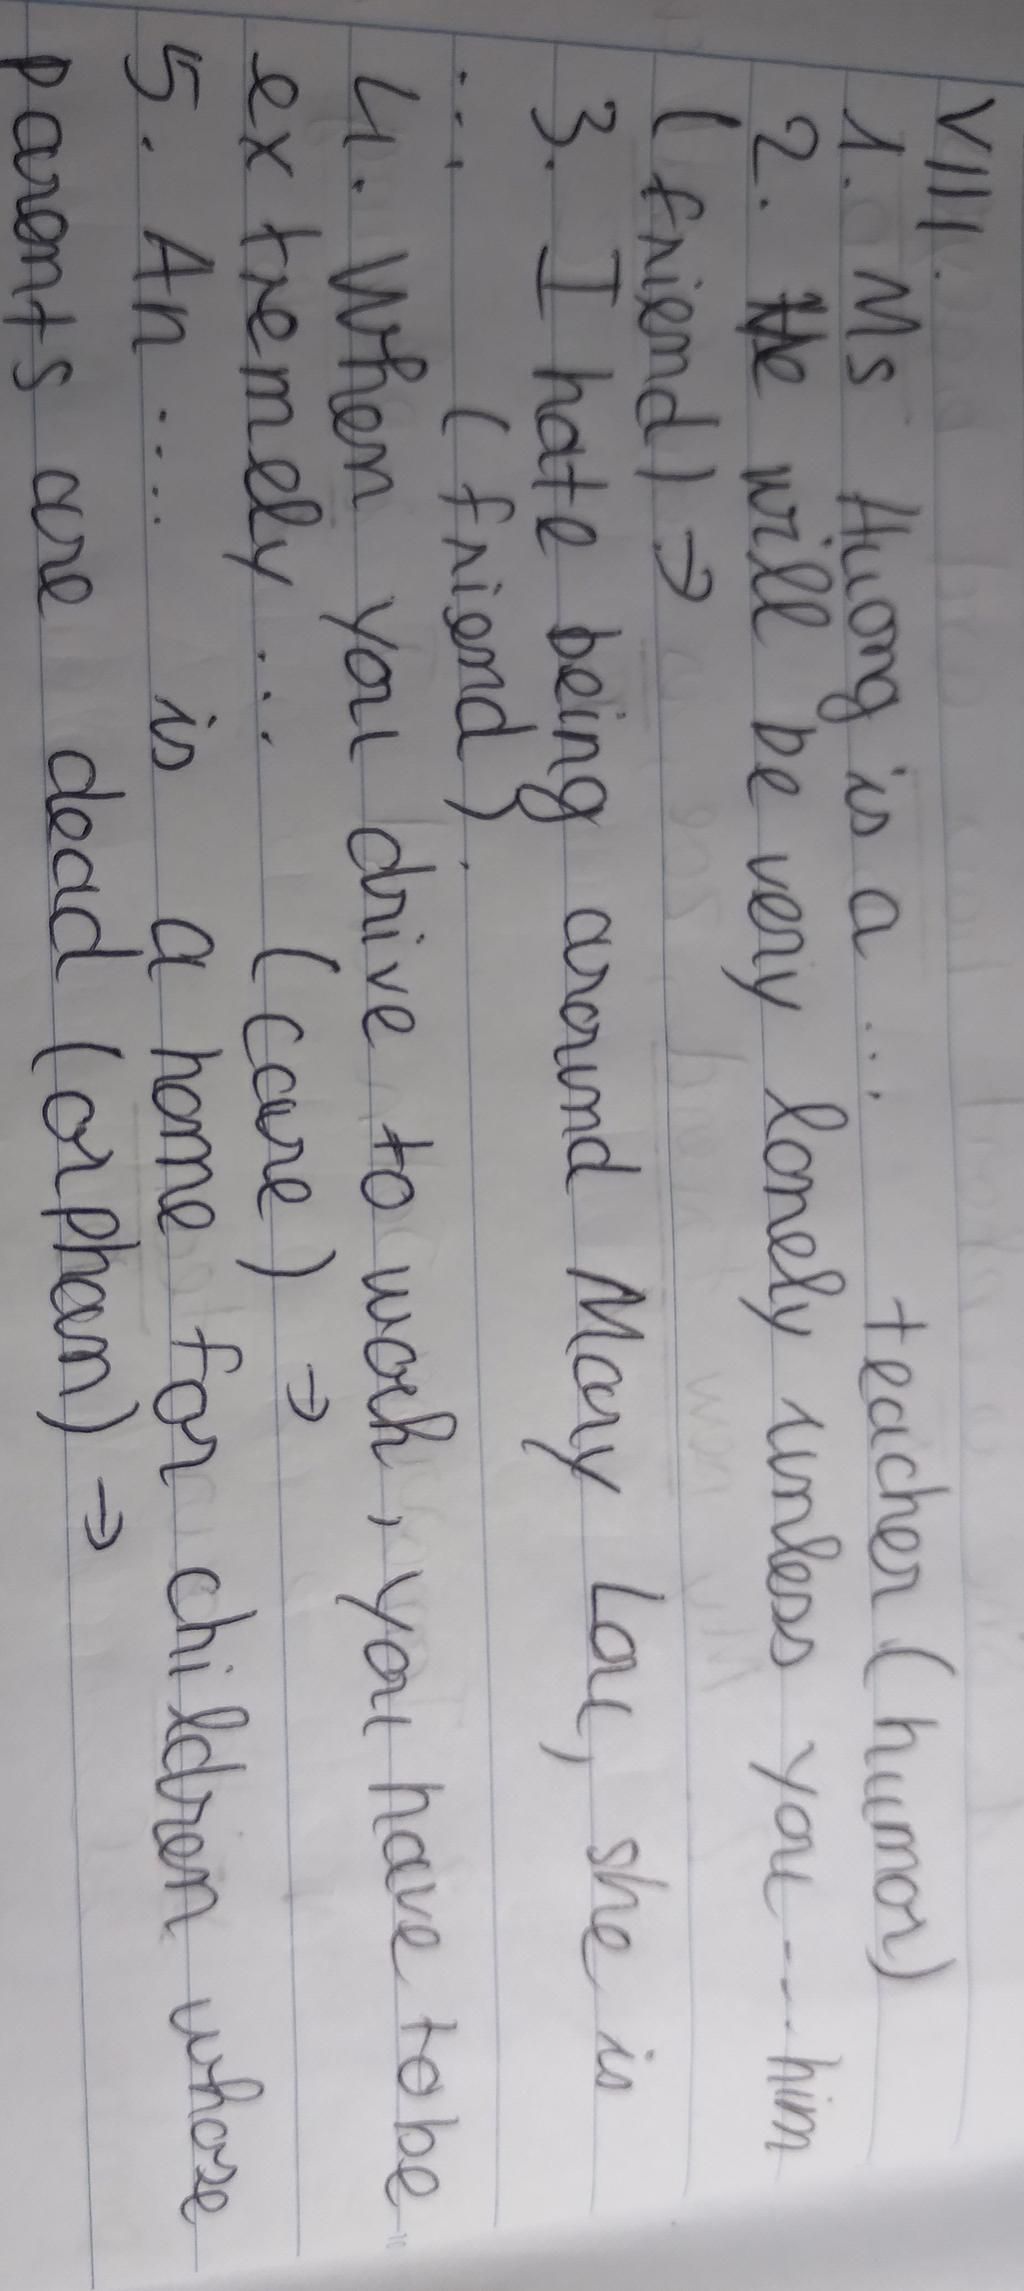 VIII.
1. Ms Huong is a .... teacher (humor)
2. He will be very lonely unless you .... him
(friend) →
3. I hate being around Mary Lou, she is
.... (friend).
4. When you drive to work, you have to be
extremely .... (care) →
5. An ..... is a home for children whose
parents are dead (orphan) →